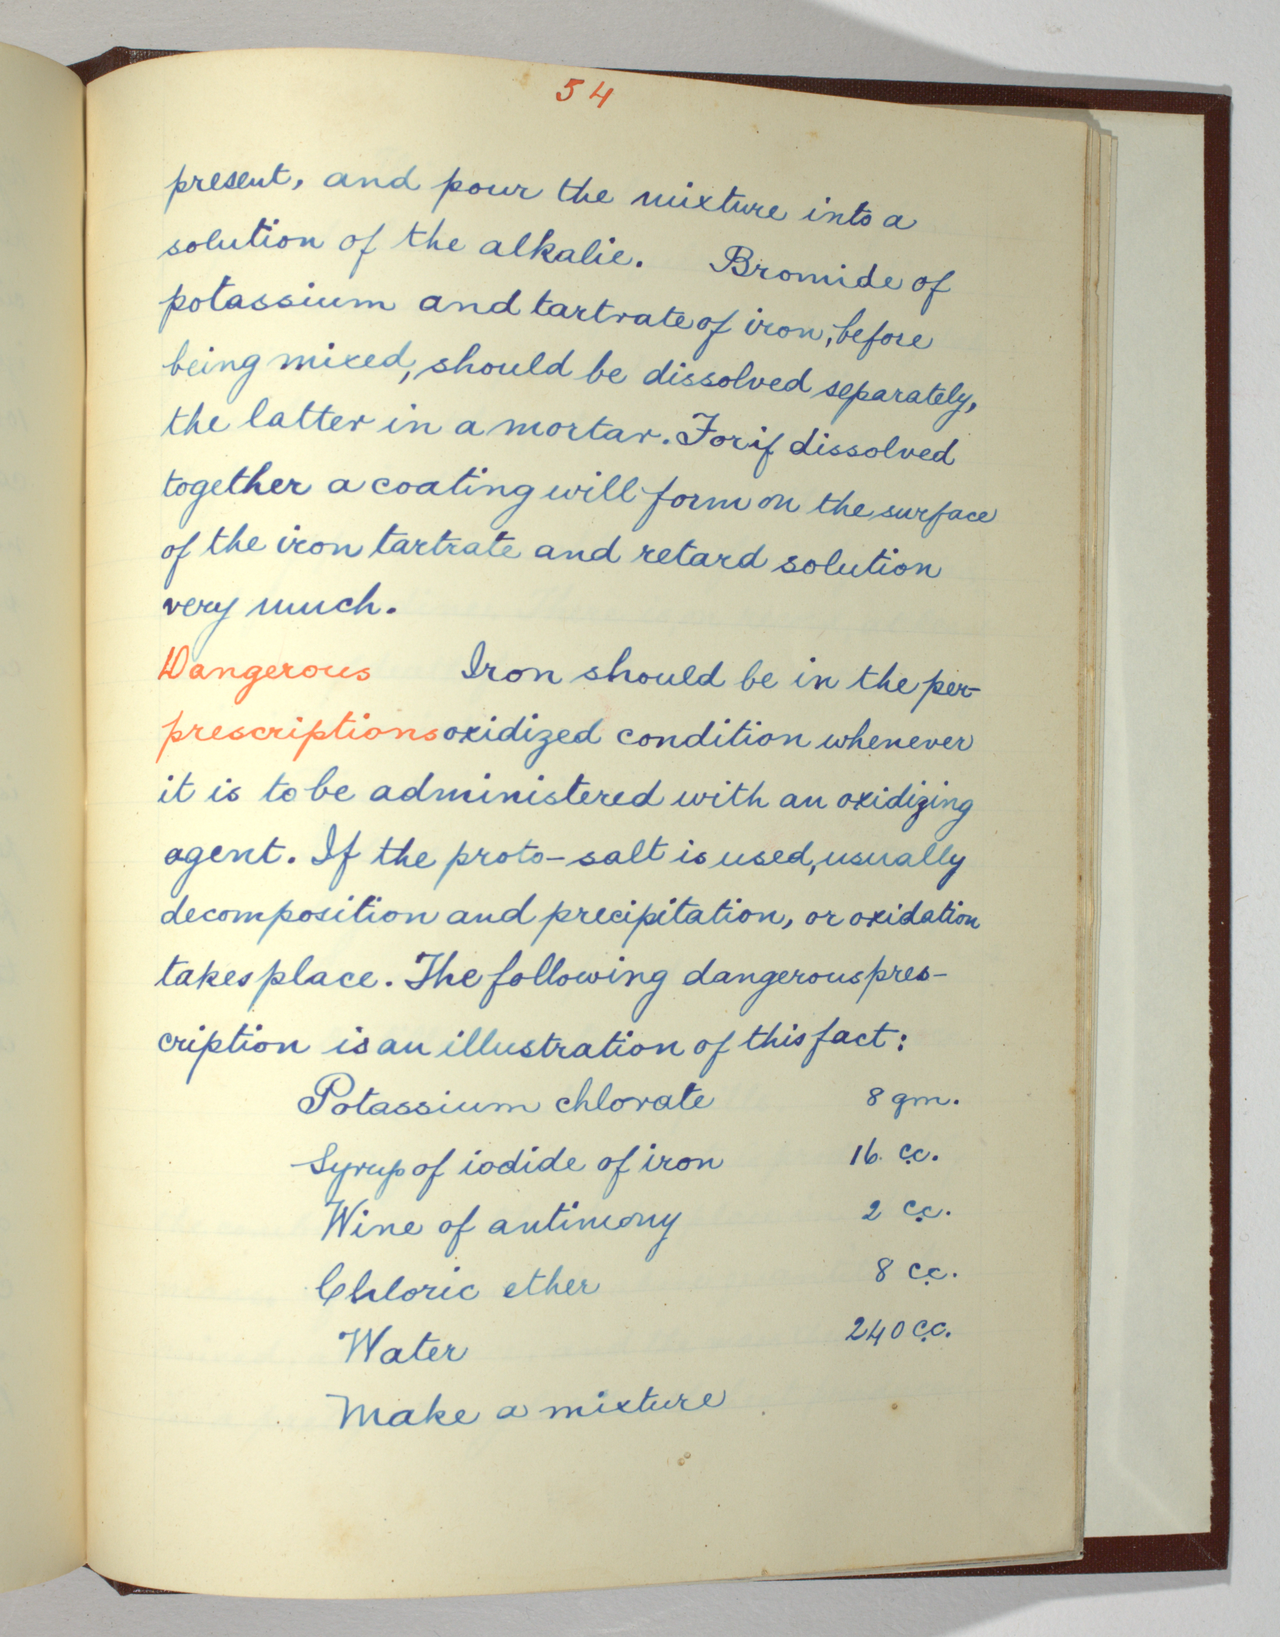 54
present, and pour the mixture into a
solution of the alkalie. Bromide of
potassium and tartrate of iron, before
being mixed, should be dissolved separately,
the latter in a mortar. For if dissolved
together a coating will form on the surface
of the iron tartrate and retard solution
very much.
Dangerous Iron should be in the per-
prescriptions oxidized condition whenever
it is to be administered with an oxidizing
agent. If the proto-salt is used, usually
decomposition and precipitation, or oxidation
takes place. The following dangerous pres-
cription is an illustration of this fact:
Potassium chlorate 8 gm.
Syrup of iodide of iron 16 c.c.
Wine of antimony 2 c.c.
Chloric ether 8 c.c.
Water 240 c.c.
Make a mixture